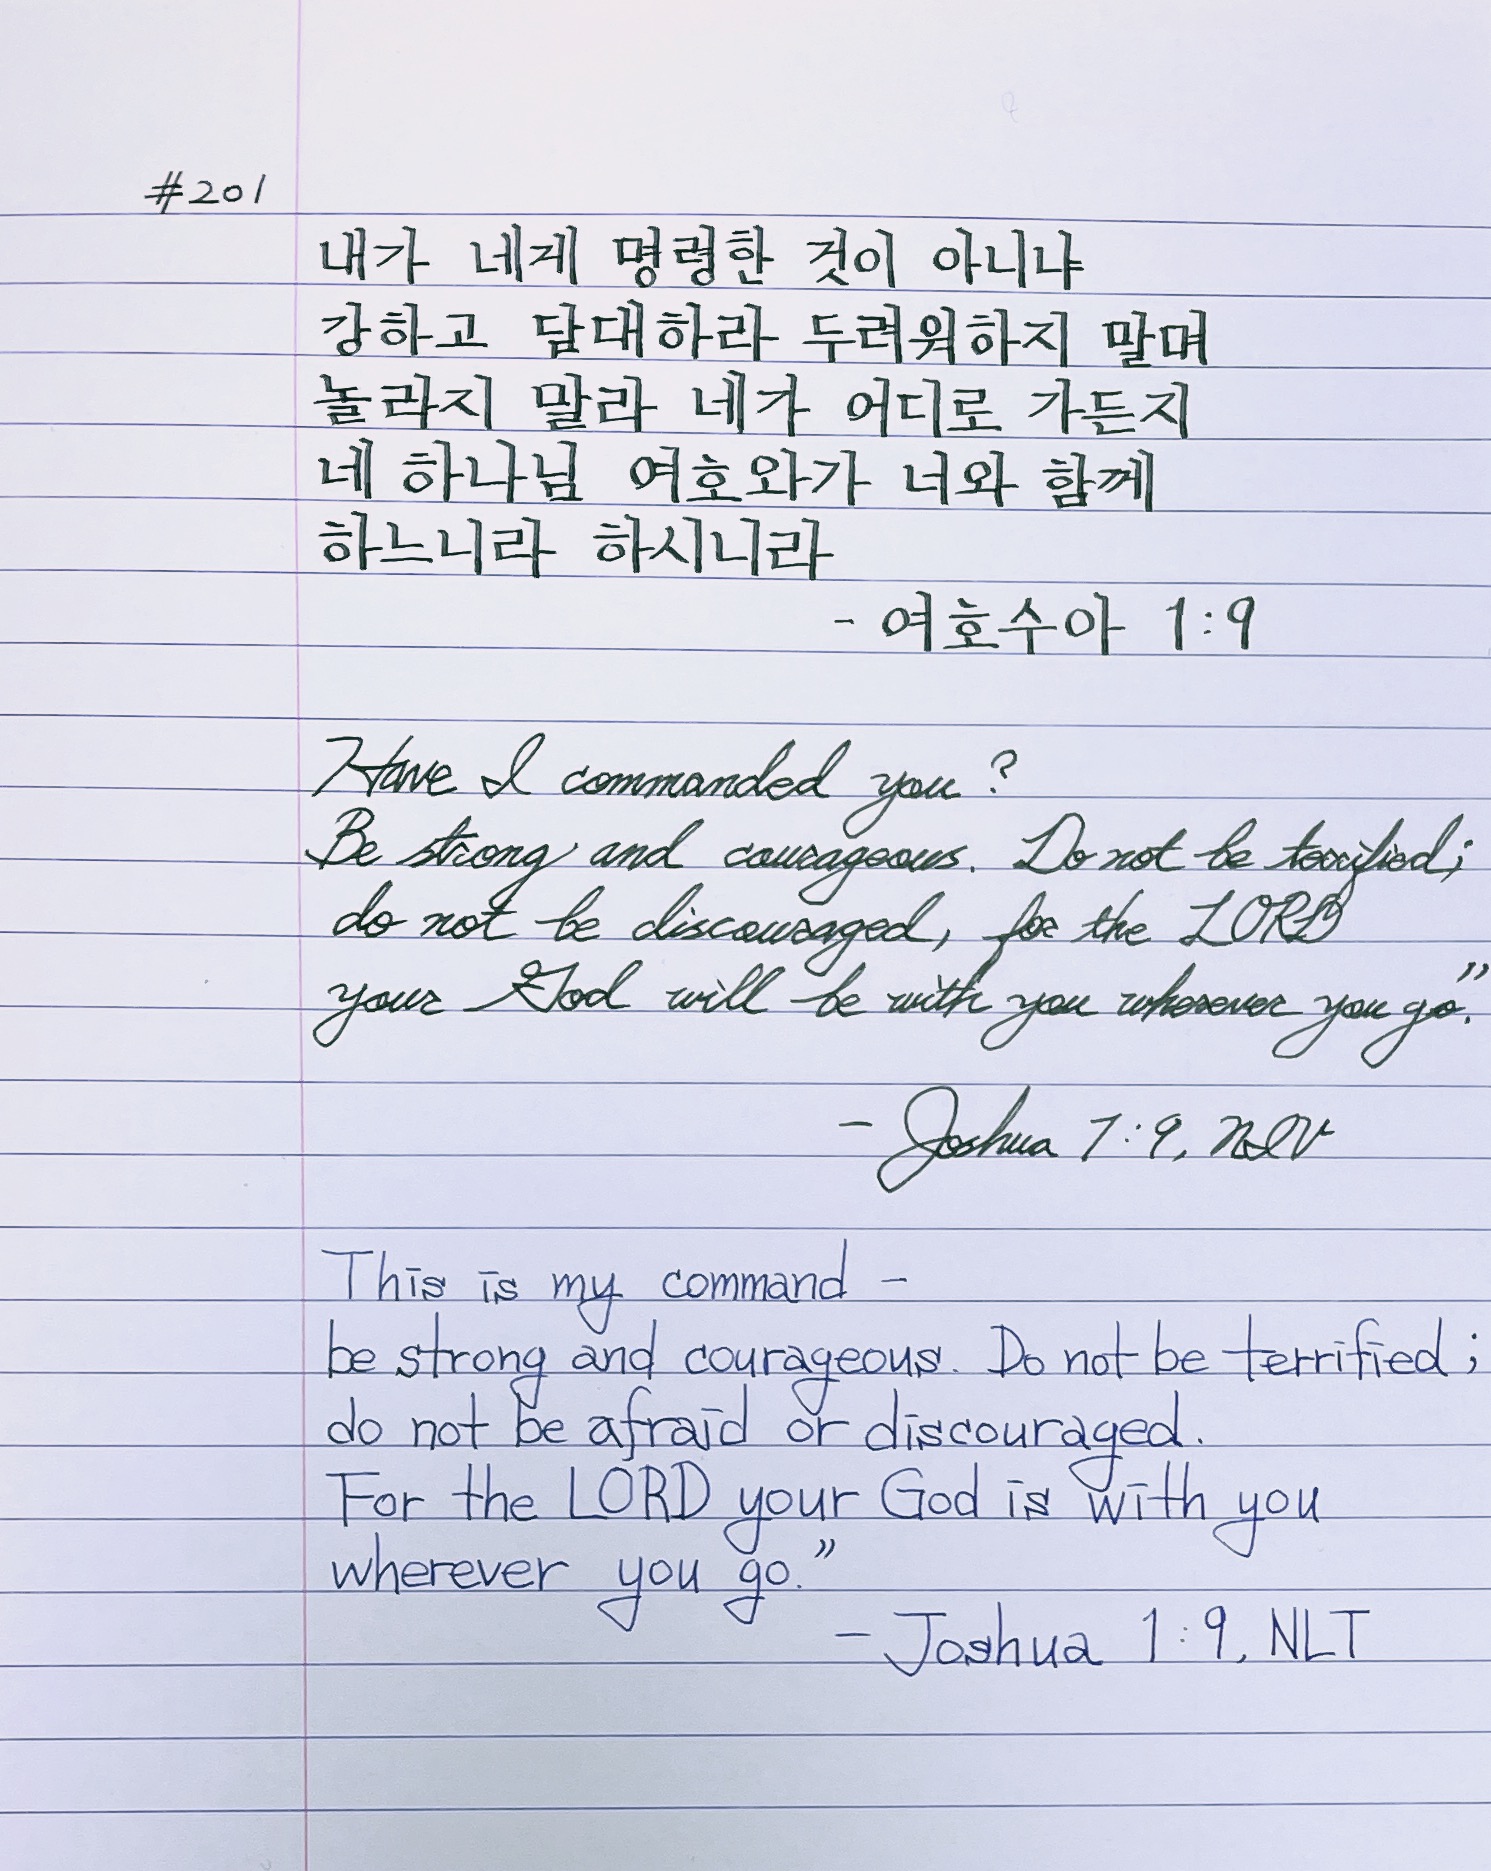 #201
내가 네게 명령한 것이 아니냐
강하고 담대하라 두려워하지 말며
놀라지 말라 네가 어디로 가든지
네 하나님 여호와가 너와 함께
하느니라 하시니라
- 여호수아 1:9
Have I commanded you?
Be strong and courageous. Do not be terrified;
do not be discouraged, for the LORD
your God will be with you wherever you go.”
- Joshua 1:9, NIV
This is my command -
be strong and courageous. Do not be terrified;
do not be afraid or discouraged.
For the LORD your God is with you
wherever you go.”
- Joshua 1:9, NLT